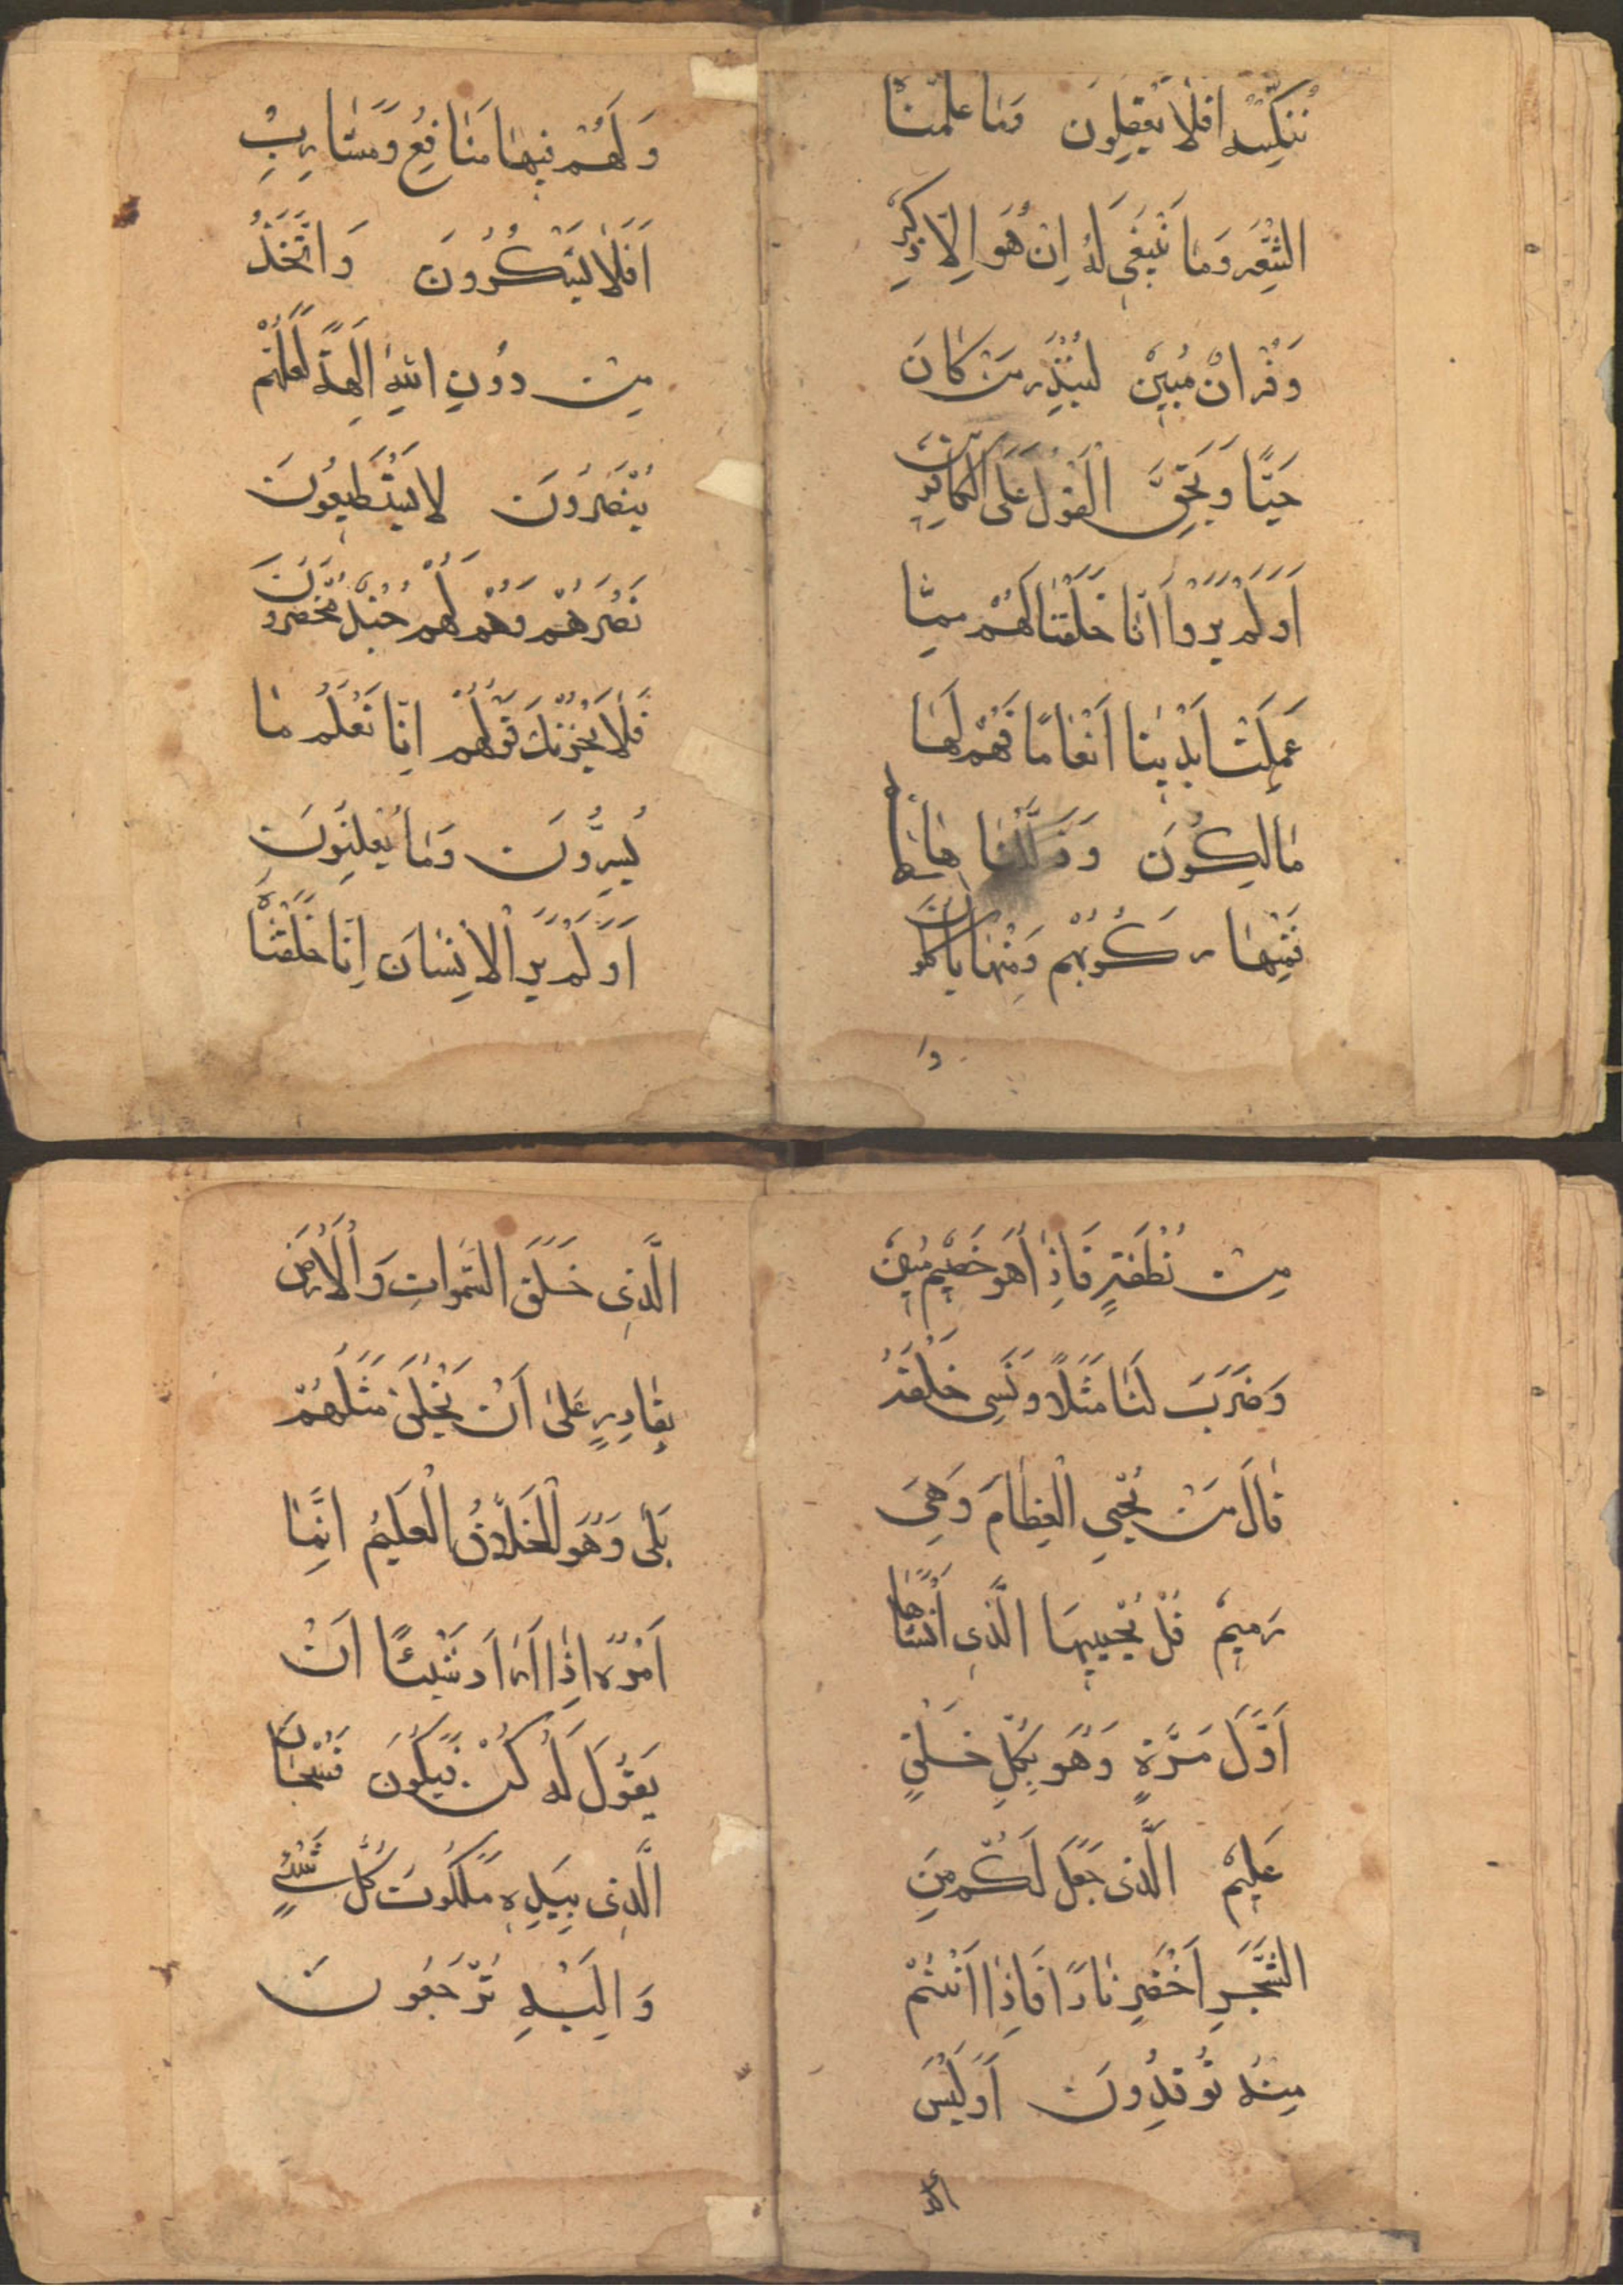 نُنَكِّسْهُ اَفَلَا يَعْقِلُونَ وَمَا عَلَّمْنَاهُ
الشِّعْرَ وَمَا يَنْبَغِي لَهُ اِنْ هُوَ اِلَّا ذِكْرٌ
وَقُرْاٰنٌ مُبِينٌ لِيُنْذِرَ مَنْ كَانَ
حَيًّا وَيَحِقَّ الْقَوْلُ عَلَى الْكَافِرِينَ
اَوَلَمْ يَرَوْا اَنَّا خَلَقْنَا لَهُمْ مِمَّا
عَمِلَتْ اَيْدِينَا اَنْعَامًا فَهُمْ لَهَا
مَالِكُونَ وَذَلَّلْنَاهَا لَهُمْ
فَمِنْهَا رَكُوبُهُمْ وَمِنْهَا يَاكُلُونَ
وَلَهُمْ فِيهَا مَنَافِعُ وَمَشَارِبُ
اَفَلَا يَشْكُرُونَ وَاتَّخَذُ
مِنْ دُونِ اللهِ اٰلِهَةً لَعَلَّهُمْ
يُنْصَرُونَ لَا يَسْتَطِيعُونَ
نَصْرَهُمْ وَهُمْ لَهُمْ جُنْدٌ مُحْضَرُونَ
فَلَا يَحْزُنْكَ قَوْلُهُمْ اِنَّا نَعْلَمُ مَا
يُسِرُّونَ وَمَا يُعْلِنُونَ
اَوَلَمْ يَرَ الْاِنْسَانَ اِنَّا خَلَقْنَاهُ
مِنْ نُطْفَةٍ فَاِذَا هُوَ خَصِيمٌ مُبِينٌ
وَضَرَبَ لَنَا مَثَلًا وَنَسِيَ خَلْقَهُ
قَالَ مَنْ يُحْيِي الْعِظَامَ وَهِيَ
رَمِيمٌ قُلْ يُحْيِيهَا الَّذِي اَنْشَاَهَا
اَوَّلَ مَرَّةٍ وَهُوَ بِكُلِّ خَلْقٍ
عَلِيمٌ الَّذِي جَعَلَ لَكُمْ مِنَ
الشَّجَرِ اَخْضَرِ نَارًا فَاِذَا اَنْتُمْ
مِنْهُ تُوقِدُونَ اَوَلَيْسَ
الَّذِي خَلَقَ السَّمٰوَاتِ وَالْاَرْضَ
بِقَادِرٍ عَلٰى اَنْ يَخْلُقَ مِثْلَهُمْ
بَلٰى وَهُوَ الْخَلَّاقُ الْعَلِيمُ اِنَّمَا
اَمْرُهُ اِذَا اَرَادَ شَيْئًا اَنْ
يَقُولَ لَهُ كُنْ فَيَكُونَ فَسُبْحَانَ
الَّذِي بِيَدِهِ مَلَكُوتَ كُلِّ شَيْءٍ
وَاِلَيْهِ تُرْجَعُونَ